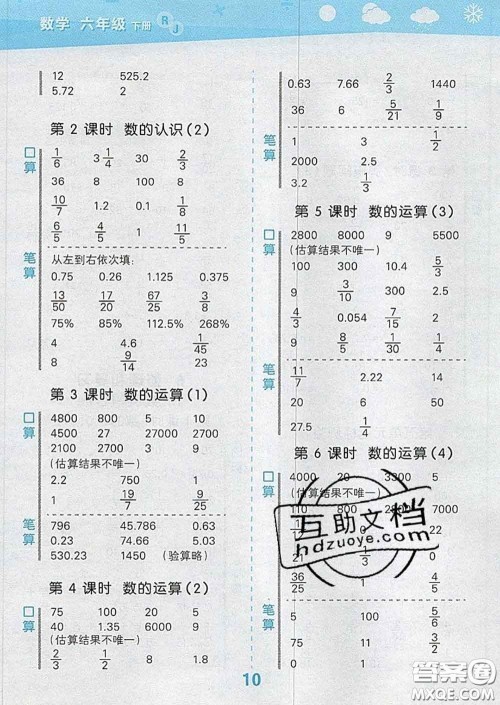 数学 六年级 下册 RJ
12 525.2
5.72 2
第 2 课时 数的认识(2)
口算
1/6 3 1/4 30 2/3
36 8 100 8
10/7 1.2 0.1 1/8
6/5 4/5 1 11/5
笔算
从左到右依次填:
0.75 0.26 1.125 0.375
13/50 17/20 67/25 3/8
75% 85% 112.5% 268%
4 4.6 1/45
8 9/14 23
第 3 课时 数的运算(1)
口算
4800 800 5 10
4500 27 27000 2700
2100 2700 3 9
(估算结果不唯一)
2.2 750 1
1 19/7 9/25
笔算
796 45.786 0.63
0.23 74.66 5.05
530.23 1450 (验算略)
第 4 课时 数的运算(2)
口算
75 100 20 5
40 1.35 6000 9
(估算结果不唯一)
2/3 1/2 8 1.8
0.63 7.66 2/3 1440
36 6 5/21 1/9
笔算
1 3 1/2
2000 2.5
3.2 1/3
第 5 课时 数的运算(3)
口算
2800 8000 9 5500
(估算结果不唯一)
100 300 10.4 5/3
9 3/10 300 3
4/3 0.054 7/15 2
9 8/5 30 1/4
笔算
11/7 2.22 14
20 6 50
27.5 1/4
第 6 课时 数的运算(4)
口算
4000 20 3300 5
(估算结果不唯一)
110 800 7000
0
21 1/3 0
36/25 1/4
笔算
5 100 5/6
75 11 3
1/3
互助文档
hdzuoye.com
10
答案圈
MXQE.COM